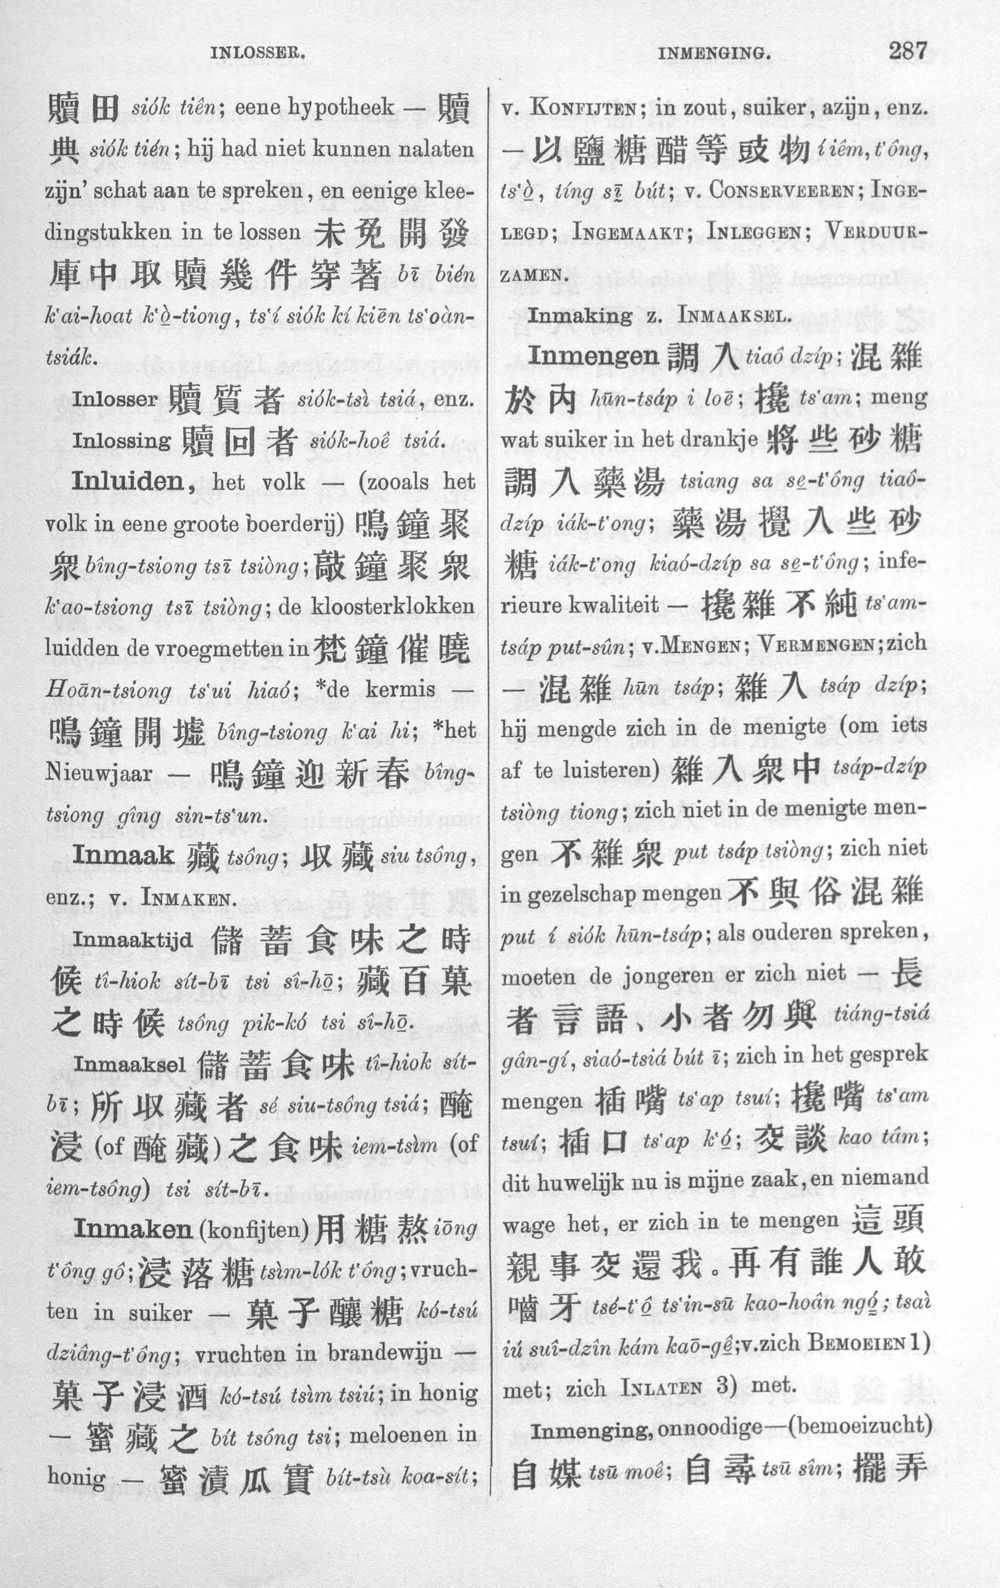 INLOSSER.
INMENGING.
287
贖田 siók tiên; eene hypotheek — 贖
典 siók tién; hij had niet kunnen nalaten
zijn’ schat aan te spreken, en eenige klee-
dingstukken in te lossen 未免開發
庫中取贖幾件穿著 bī bién
k‘ai-hoat k‘ò-tiong, ts‘í siók kí kiēn ts‘oàn-
tsiák.
Inlosser 贖質者 siók-tsì tsiá, enz.
Inlossing 贖回者 siók-hoê tsiá.
Inluiden, het volk — (zooals het
volk in eene groote boerderij) 鳴鐘聚
衆 bîng-tsiong tsī tsiòng; 敲鐘聚衆
k‘ao-tsiong tsī tsiòng; de kloosterklokken
luidden de vroegmetten in 梵鐘催曉
Hoān-tsiong ts‘ui hiaó; *de kermis —
鳴鐘開墟 bîng-tsiong k‘ai hi; *het
Nieuwjaar — 鳴鐘迎新春 bîng-
tsiong gîng sin-ts‘un.
Inmaak 藏 tsông; 収藏 siu tsông,
enz.; v. INMAKEN.
Inmaaktijd 儲蓄食味之時
候 tî-hiok sít-bī tsi sî-hō̤; 藏百菓
之時候 tsông pik-kó tsi sî-hō̤.
Inmaaksel 儲蓄食味 tî-hiok sít-
bī; 所収藏者 sé siu-tsông tsiá; 醃
浸 (of 醃藏) 之食味 iem-tsìm (of
iem-tsông) tsi sít-bī.
Inmaken (konfijten) 用糖熬 iōng
t‘ông gô; 浸落糖 tsìm-lók t‘ông; vruch-
ten in suiker — 菓子釀糖 kó-tsú
dziâng-t‘ông; vruchten in brandewijn —
菓子浸酒 kó-tsú tsìm tsiú; in honig
— 蜜藏之 bít tsông tsi; meloenen in
honig — 蜜漬瓜實 bít-tsù koa-sít;
v. KONFIJTEN; in zout, suiker, azijn, enz.
— 以鹽糖醋等豉物 í iêm, t‘ông,
ts‘ò̤, tíng sī̤ bút; v. CONSERVEEREN; INGE-
LEGD; INGEMAAKT; INLEGGEN; VERDUUR-
ZAMEN.
Inmaking z. INMAAKSEL.
Inmengen 調入 tiaô dzíp; 混雜
於內 hūn-tsáp i loē; 攙 ts‘am; meng
wat suiker in het drankje 將些砂糖
調入藥湯 tsiang sa se̤-t‘ông tiaô-
dzíp iák-t‘ong; 藥湯攪入些砂
糖 iák-t‘ong kiaó-dzíp sa se̤-t‘ông; infe-
rieure kwaliteit — 攙雜不純 ts‘am-
tsáp put-sûn; v. MENGEN; VERMENGEN; zich
— 混雜 hūn tsáp; 雜入 tsáp dzíp;
hij mengde zich in de menigte (om iets
af te luisteren) 雜入衆中 tsáp-dzíp
tsiòng tiong; zich niet in de menigte men-
gen 不雜衆 put tsáp tsiòng; zich niet
in gezelschap mengen 不與俗混雜
put í siók hūn-tsáp; als ouderen spreken,
moeten de jongeren er zich niet — 長
者言語、小者勿與 tiáng-tsiá
gân-gí, siaó-tsiá bút ī; zich in het gesprek
mengen 插嘴 ts‘ap tsuí; 攙嘴 ts‘am
tsuí; 插口 ts‘ap k‘ó̤; 交談 kao tâm;
dit huwelijk nu is mijne zaak, en niemand
wage het, er zich in te mengen 這頭
親事交還我。再有誰人敢
嚙牙 tsé-t‘ô̤ ts‘in-sū kao-hoân ngó̤; tsaì
iú suî-dzîn kám kaō-gê̤; v. zich BEMOEIEN 1)
met; zich INLATEN 3) met.
Inmenging, onnoodige — (bemoeizucht)
自媒 tsū moê; 自尋 tsū sîm; 擺弄